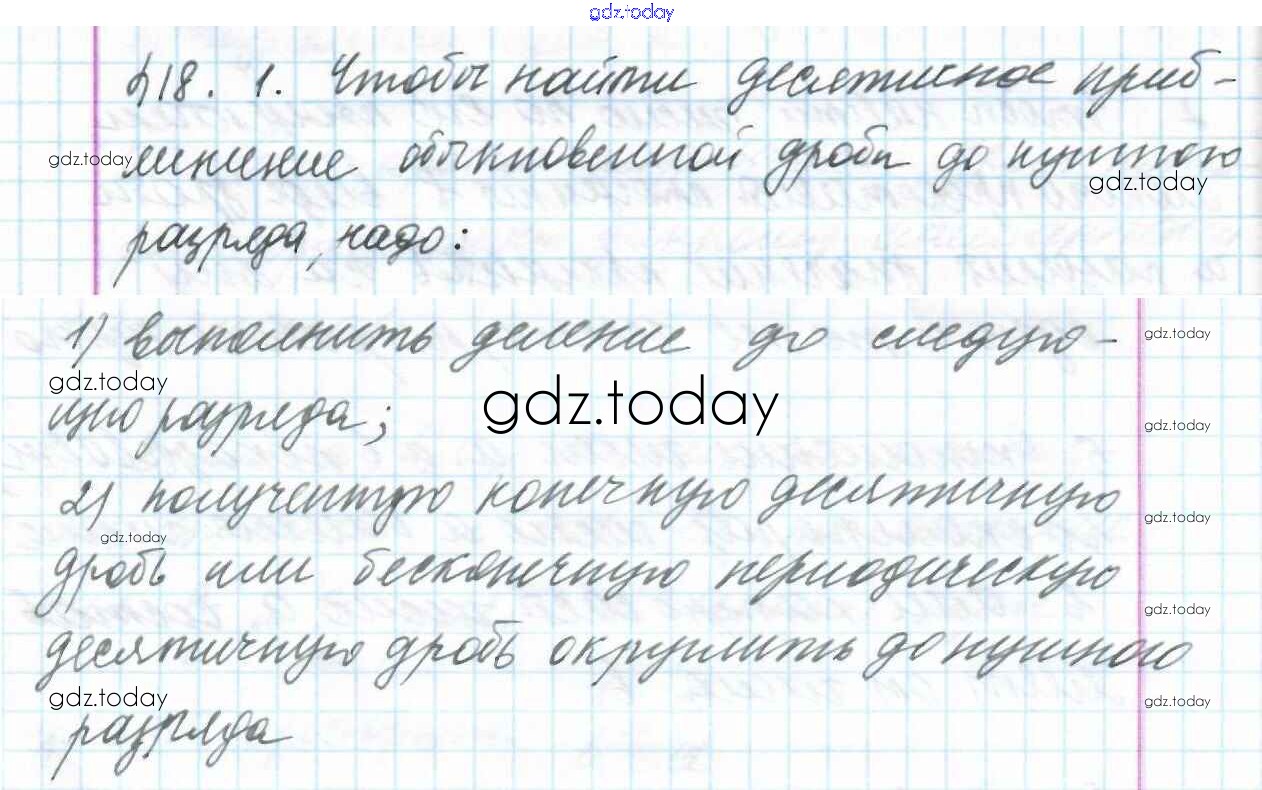 gdz.today
§18. 1. Чтобы найти десятичное приб-
gdz.today
лижение обыкновенной дроби до нужного
gdz.today
разряда, надо:
1) выполнить деление до следую-
gdz.today
gdz.today
gdz.today
щего разряда;
gdz.today
2) полученную конечную десятичную
gdz.today
gdz.today
дробь или бесконечную периодическую
gdz.today
десятичную дробь округлить до нужного
gdz.today
gdz.today
разряда